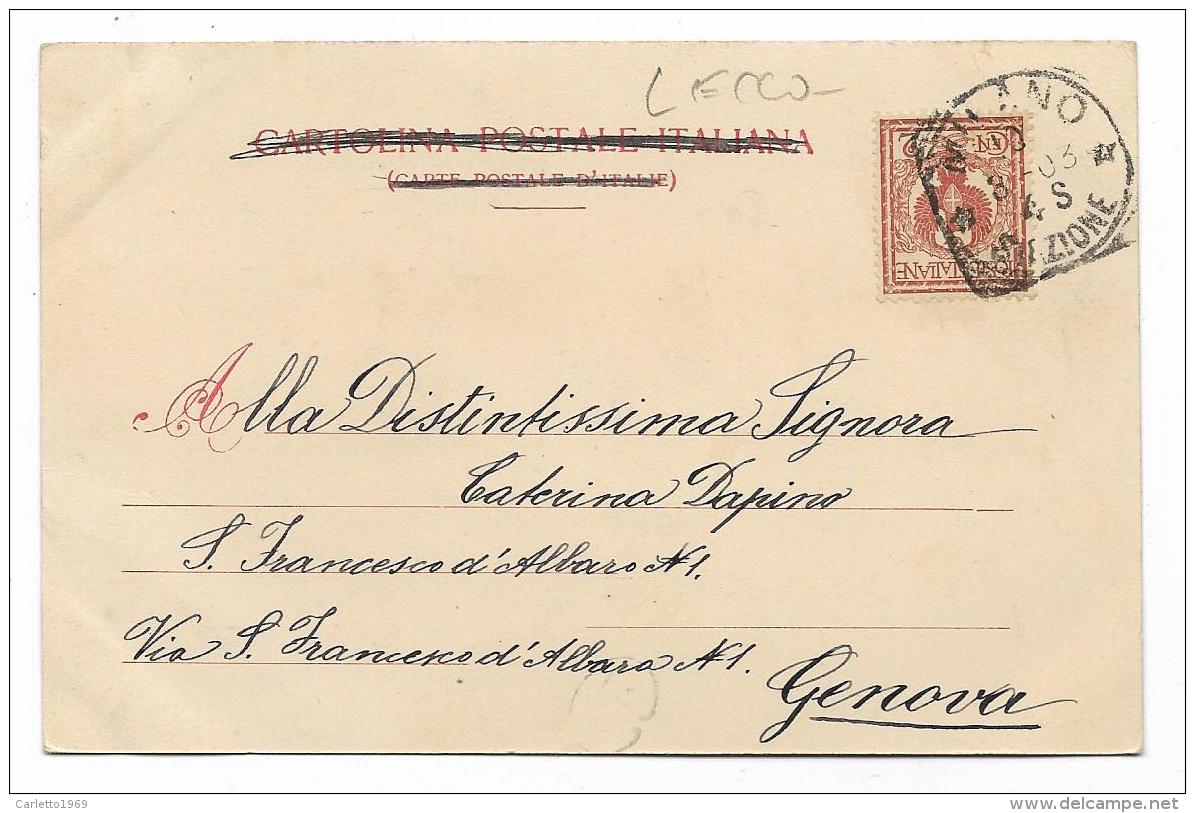 LECCO
CARTOLINA POSTALE ITALIANA
(CARTE POSTALE D'ITALIE)
MILANO
8 - 03
4 S
STAZIONE
POSTE ITALIANE
2
Alla Distintissima Signora
Caterina Dapino
S. Francesco d'Albaro N1.
Via S. Francesco d'Albaro N1.
Genova
Carletto1969
www.delcampe.net